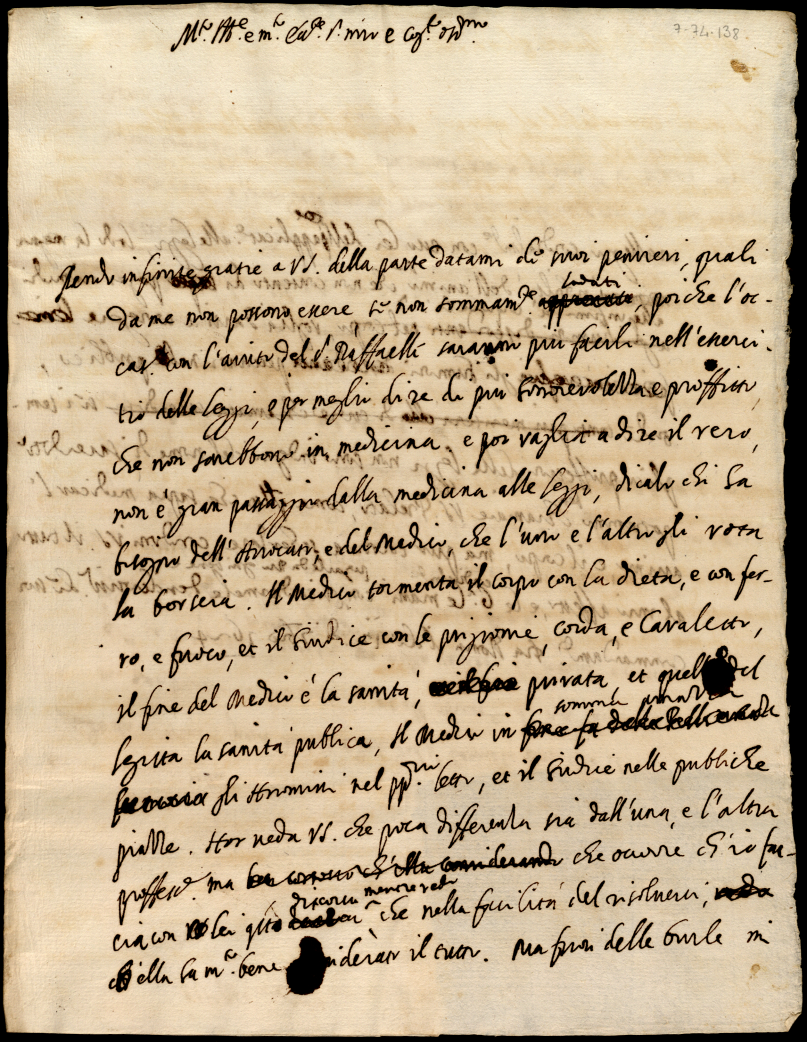 7-74-138.
Rendo infinite gratie a VS. della parte datami de suoi pensieri, quali
da me non possono essere se non sommam.te lodati, poiche l'oc-
cas. con l'aiuto del S. Raffaelli saranno piu facili nell'eserci-
tio delle leggi, e per meglio dire di piu honorevolezza e proffitto,
che non sarebbono in medicina. e poi vaglia a dire il vero,
non è gran passaggio dalla medicina alle leggi, dicalo chi ha
bisogno dell'Avvocato, e del Medico, che l'uno e l'altro gli vota
la borscia. Il Medico tormenta il corpo con la dieta, e con fer-
ro, e fuoco, et il Giudice con le prigione, corda, e Cavaletto,
il fine del Medico è la sanità, privata, et quello del
legista la sanità publica, Il Medico in somma
gli Huomini nel pp.rio letto, et il Giudice nelle publiche
piazze. Hor veda VS. che poca differenza sia dall'una, e l'altra
profess.e ma che occorre ch'io fac-
cia con lei q.to discorso mentre vedo che nella facilità del risolversi,
ella ha m.to bene considerato il tutto. Ma fuori delle burle mi